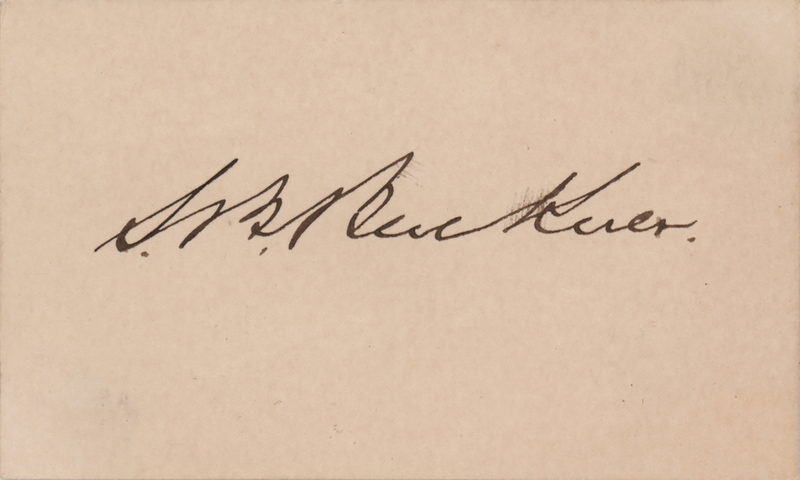 S. B. Buckner.